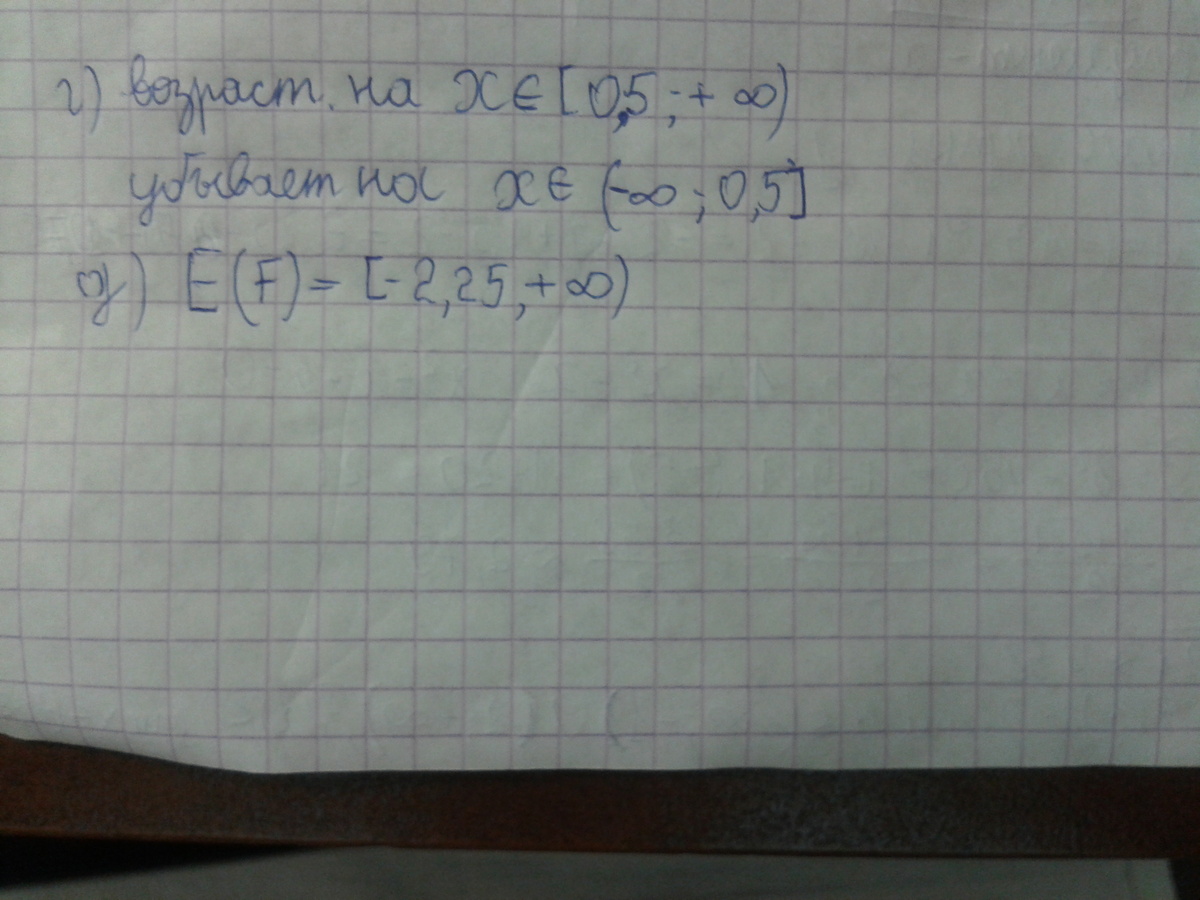 г) возраст. на x∈[0,5;+∞)
убывает на x∈(-∞;0,5]
д) E(F)=[-2,25,+∞)